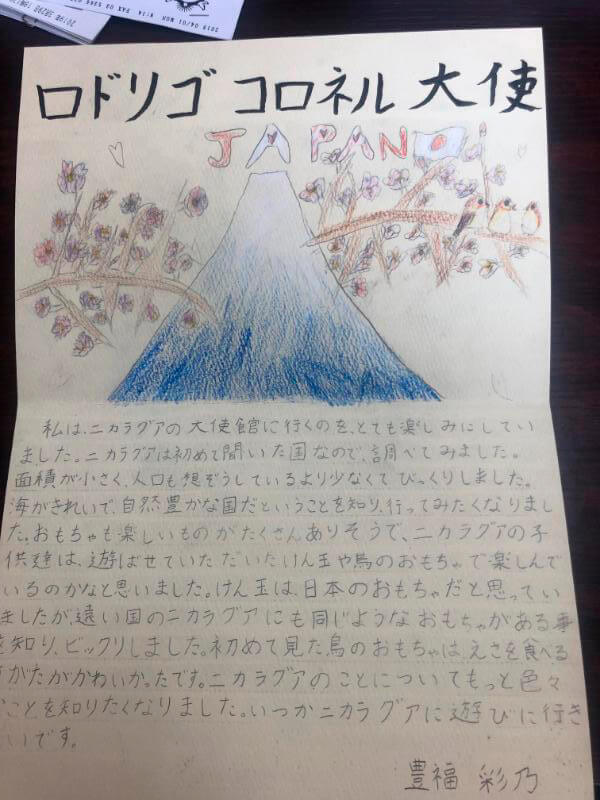 2019 04/01 MON
FAX 03
ロドリゴ コロネル 大使
JAPAN
私は、ニカラグアの大使館に行くのを、とても楽しみにしてい
ました。ニカラグアは初めて聞いた国なので、調べてみました。
面積が小さく、人口も想ぞうしているより少なくてびっくりしました。
海がきれいで、自然豊かな国だということを知り、行ってみたくなりまし
た。おもちゃも楽しいものがたくさんありそうで、ニカラグアの子
供達は、遊ばせていただいたけん玉や鳥のおもちゃで楽しんで
いるのかなと思いました。けん玉は、日本のおもちゃだと思ってい
ましたが、遠い国のニカラグアにも同じようなおもちゃがある事
を知り、ビックリしました。初めて見た鳥のおもちゃは、えさを食べる
すがたがかわいかったです。ニカラグアのことについてもっと色々
なことを知りたくなりました。いつかニカラグアに遊びに行き
たいです。
豊福 彩乃